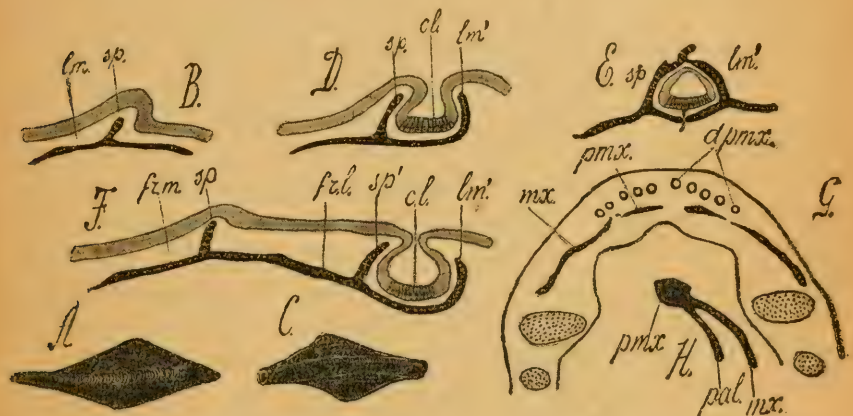 lm. sp. B.
D. sp. cl. lm'
E. sp lm'.
F. fr.m sp fr.l. sp' cl. lm'
pmx. d pmx.
mx. G.
A C.
pmx H. pal. mx.